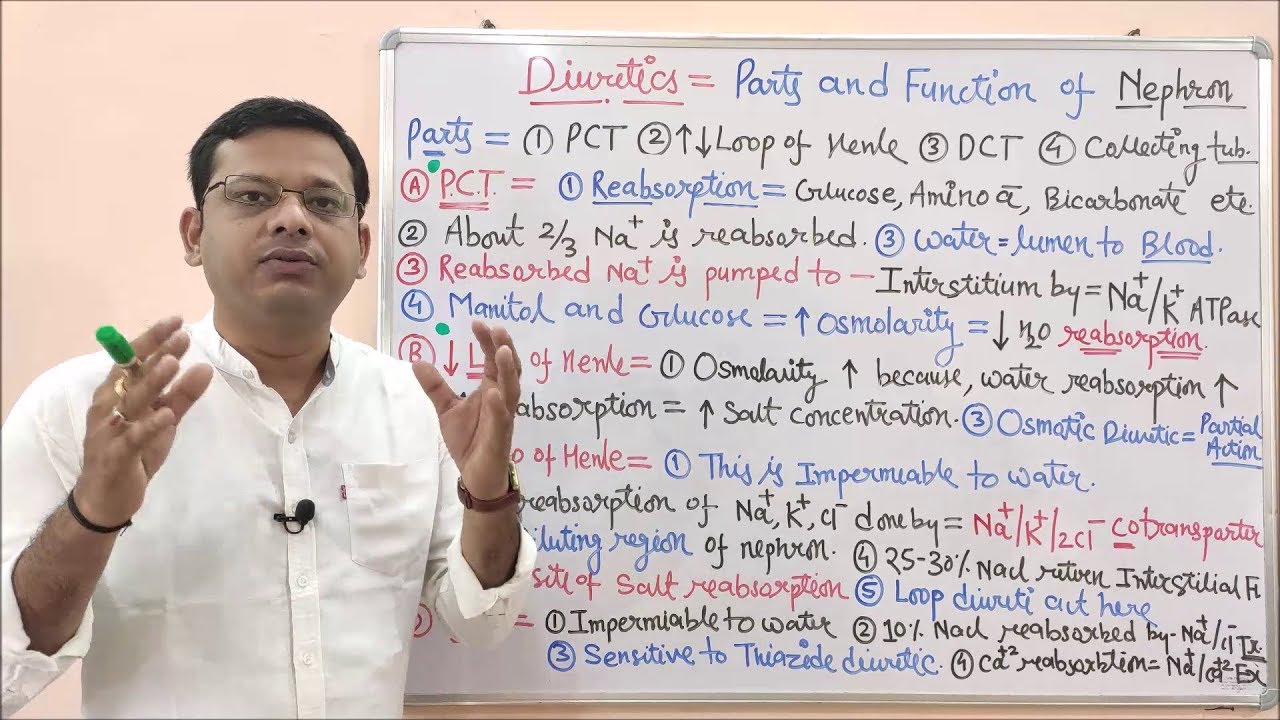 Diuretics = Parts and Function of Nephron
Parts = ① PCT ② ↑↓ Loop of Henle ③ DCT ④ Collecting tub.
Ⓐ P.C.T. = ① Reabsorption = Glucose, Amino ā, Bicarbonate etc.
② About 2/3 Na⁺ is reabsorbed. ③ Water = lumen to Blood.
③ Reabsorbed Na⁺ is pumped to – Interstitium by = Na⁺/K⁺ ATPase
④ Manitol and Glucose = ↑ Osmolarity = ↓ H2O reabsorption.
Ⓑ ↓ L of Henle = ① Osmolarity ↑ because, water reabsorption ↑
absorption = ↑ Salt concentration. ③ Osmotic Diuretic = Partial Action
of Henle = ① This is Impermiable to water.
reabsorption of Na⁺, K⁺, Cl⁻ done by = Na⁺/K⁺/2Cl⁻ Cotransparter
diluting region of nephron. ④ 25-30% Nacl return Interstilial Fl
site of Salt reabsorption ⑤ Loop diureti act here
= ① Impermiable to water ② 10% Nacl reabsorbed by - Na⁺/cl⁻ Tx.
③ Sensitive to Thiazide diuretic. ④ Ca⁺² reabsorbtion = Na⁺/ca⁺² Ex